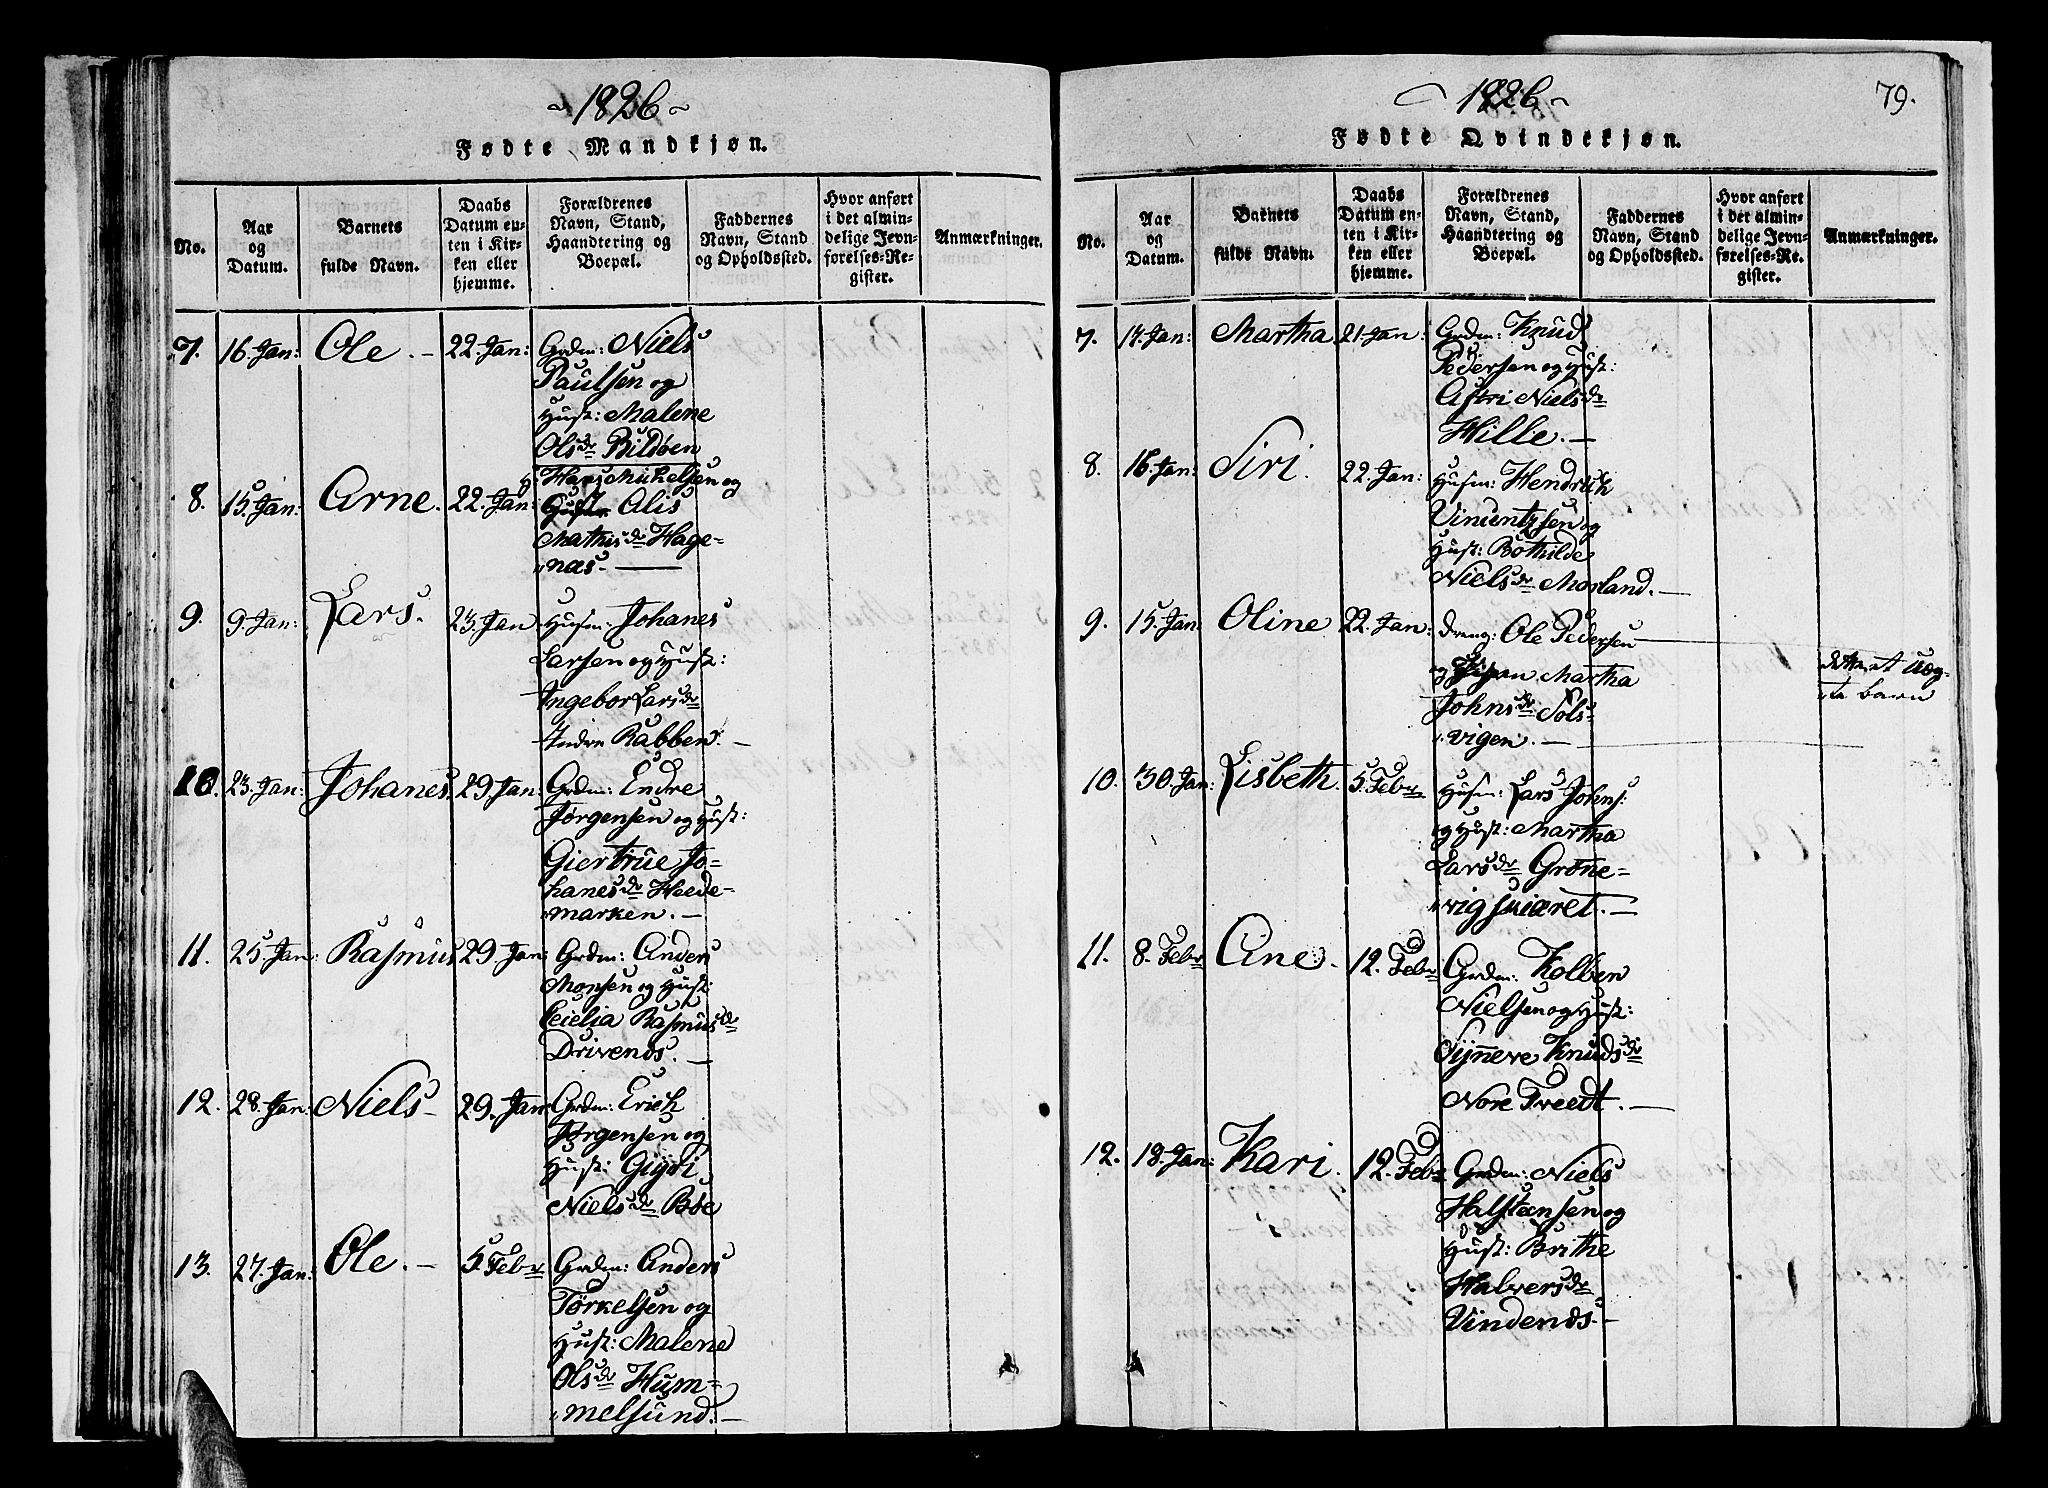 ~1826~
Fødte Mandkjøn.
No.
Aar
og
Datum.
Barnets
fulde Navn.
Daabs
Datum en-
ten i Kir-
ken eller
hjemme.
Forældrenes
Navn, Stand,
Haandtering og
Boepæl.
Faddernes
Navn, Stand
og Opholdssted.
Hvor anført
i det almin-
delige Jevn-
førelses-Re-
gister.
Anmærkninger.
7. 16. Jan: Ole. – 22. Jan: Grdm: Niels
Paulsen og
Hust: Malene
Olsdr Bildøen
8. 15. Jan: Arne. 22. Jan: Hans Mickelsen og
Hust Alis
Mathisdr Hage-
næs. —
9. 9. Jan: Lars. 23. Jan Husm: Johanes
Larsen og Hust:
Ingebor Larsdr
Indre Rabben. –
10. 23. Jan: Johanes. 29. Jan: Grdm: Endre
Jørgensen og Hust:
Giertrue Jo-
hanesdr Heede-
marken. –
11. 25. Jan: Rasmus 29. Jan: Grdm: Anders
Monsen og Hust:
Ceielia Rasmusdr
Drivenes. –
12. 28. Jan: Niels – 29. Jan Grdm: Erich
Jørgensen og
Hust: Giyri
Nielsdr Bøe
13. 27. Jan: Ole. – 5. Febr Grdm: Anders
Tørkelsen og
Hust: Malene
Olsdr Hum-
melsund. –
~1826~
79.
Fødte Qvindekjøn.
No.
Aar
og
Datum.
Barnets
fulde Navn.
Daabs
Datum en-
ten i Kir-
ken eller
hjemme.
Forældrenes
Navn, Stand,
Haandtering og
Boepæl.
Faddernes
Navn, Stand
og Opholdssted.
Hvor anført
i det almin-
delige Jevn-
førelses-Re-
gister.
Anmærkninger.
7. 17. Jan: Martha 21. Jan: Grdm: Knud
Pedersen og Hust:
Astri Nielsdr
Hille. –
8. 16. Jan: Siri 22. Jan: Husm: Hendrich
Vinsentzsen og
Hust: Bothilde
Nielsdr Morland. –
9. 15. Jan: Oline 22. Jan: Dreng: Ole Pedersen
og Pigen Martha
Johnsdr Sols-
vigen. –
dette et uæg-
te barn
10. 30. Jan: Lisbeth. 5. Febr Husm: Lars Johns:
og Hust: Martha
Larsdr Grøne-
vigskiæret. –
11. 8. Febr Ane. 12. Febr Grdm: Kolben
Nielsen og Hust:
Synneve Knudsdr
Nore Tveedt. –
12. 18. Jan: Kari. 12. Febr Grdm: Niels
Halsteensen og
Hust: Brithe
Halversdr
Vindenes. –